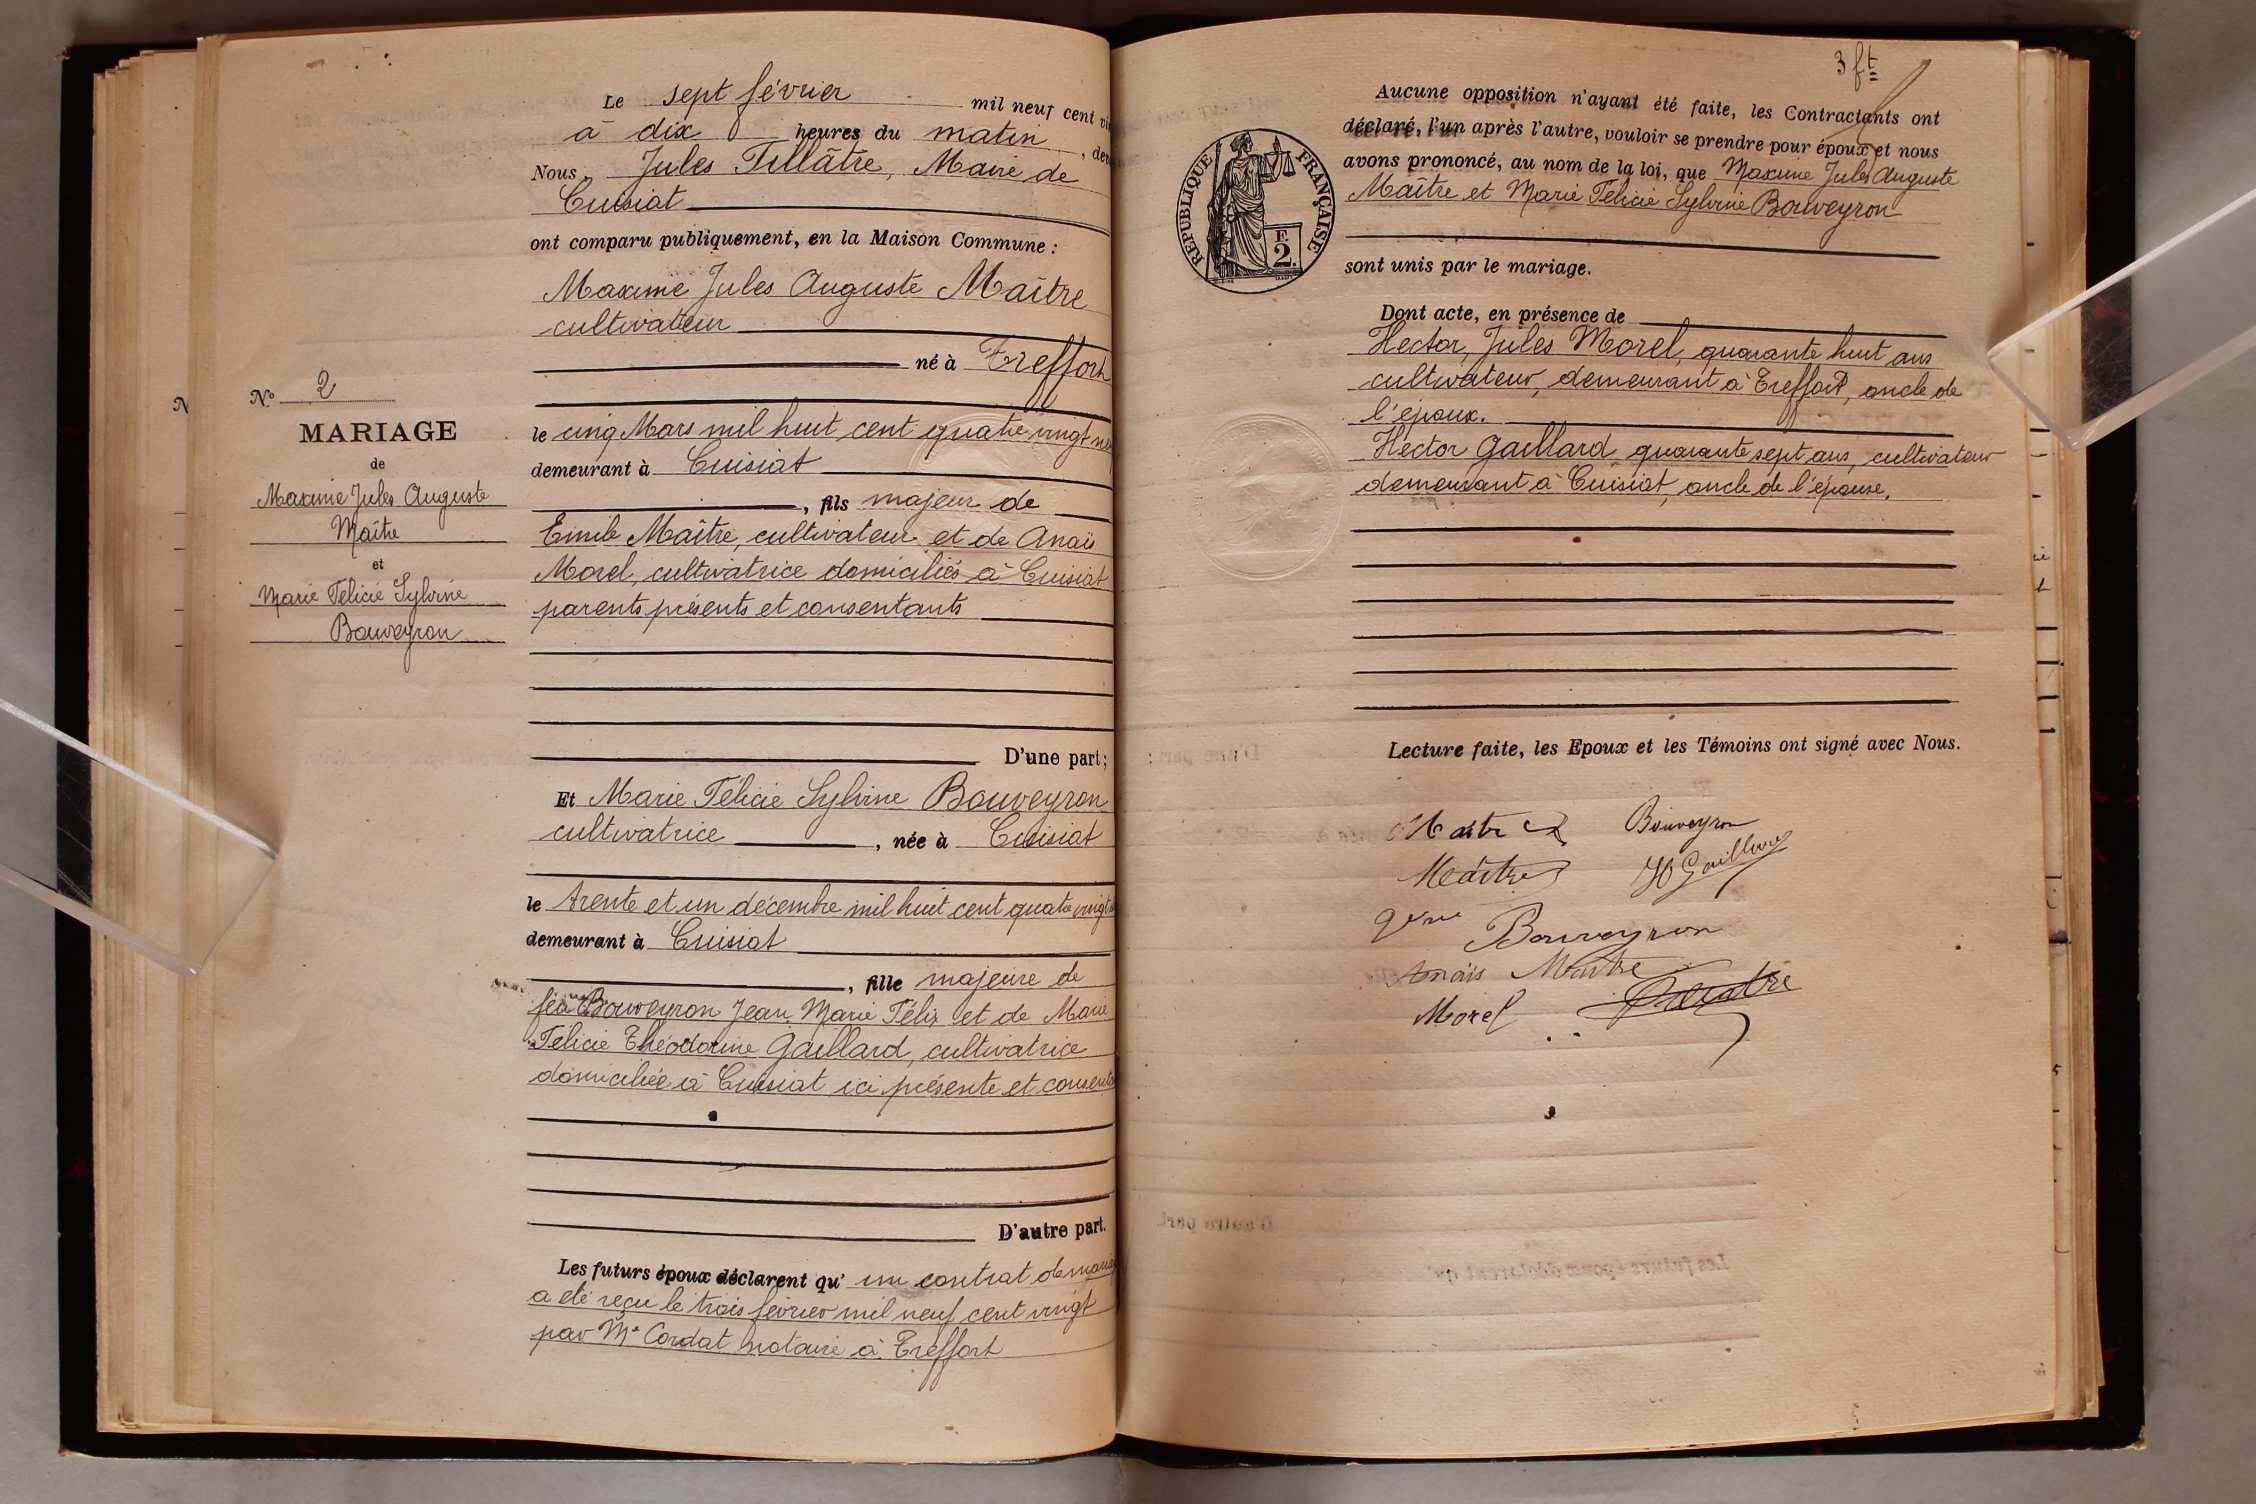 Le sept février mil neuf cent
à dix heures du matin,
Nous, Jules Tillâtre, Maire de
Cuisiat
ont comparu publiquement, en la Maison Commune :
Maxime Jules Auguste Maître
cultivateur
né à Treffort
le cinq Mars mil huit cent quatre vingt
demeurant à Cuisiat
, fils majeur de
Emile Maître, cultivateur et de Anaïs
Morel, cultivatrice domiciliés à Cuisiat
parents présents et consentants
D'une part ;
Et Marie Félicie Sylvine Bouveyron
cultivatrice, née à Cuisiat
le trente et un décembre mil huit cent quatre vingt
demeurant à Cuisiat
, fille majeure de
feu Bouveyron Jean Marie Félix et de Marie
Félicie Théodorine Gaillard, cultivatrice
domiciliée à Cuisiat ici présente et
D'autre part.
Les futurs époux déclarent qu' un contrat de
a été reçu le trois février mil neuf cent vingt
par Me Cordat notaire à Treffort
No 2
MARIAGE
de
Maxime Jules Auguste
Maître
et
Marie Félicie Sylvine
Bouveyron
3 ft
Aucune opposition n'ayant été faite, les Contractants ont
déclaré, l'un après l'autre, vouloir se prendre pour époux et nous
avons prononcé, au nom de la loi, que Maxime Jules Auguste
Maître et Marie Félicie Sylvine Bouveyron
sont unis par le mariage.
RÉPUBLIQUE FRANÇAISE
F.
2.
Dont acte, en présence de
Hector, Jules Morel, quarante huit ans
cultivateur, demeurant à Treffort, oncle de
l'époux.
Hector Gaillard quarante sept ans, cultivateur
demeurant à Cuisiat, oncle de l'épouse.
Lecture faite, les Epoux et les Témoins ont signé avec Nous.
Maître Bouveyron
Maître H Gaillard
Bouveyron
Anaïs Maître
Morel Tillâtre